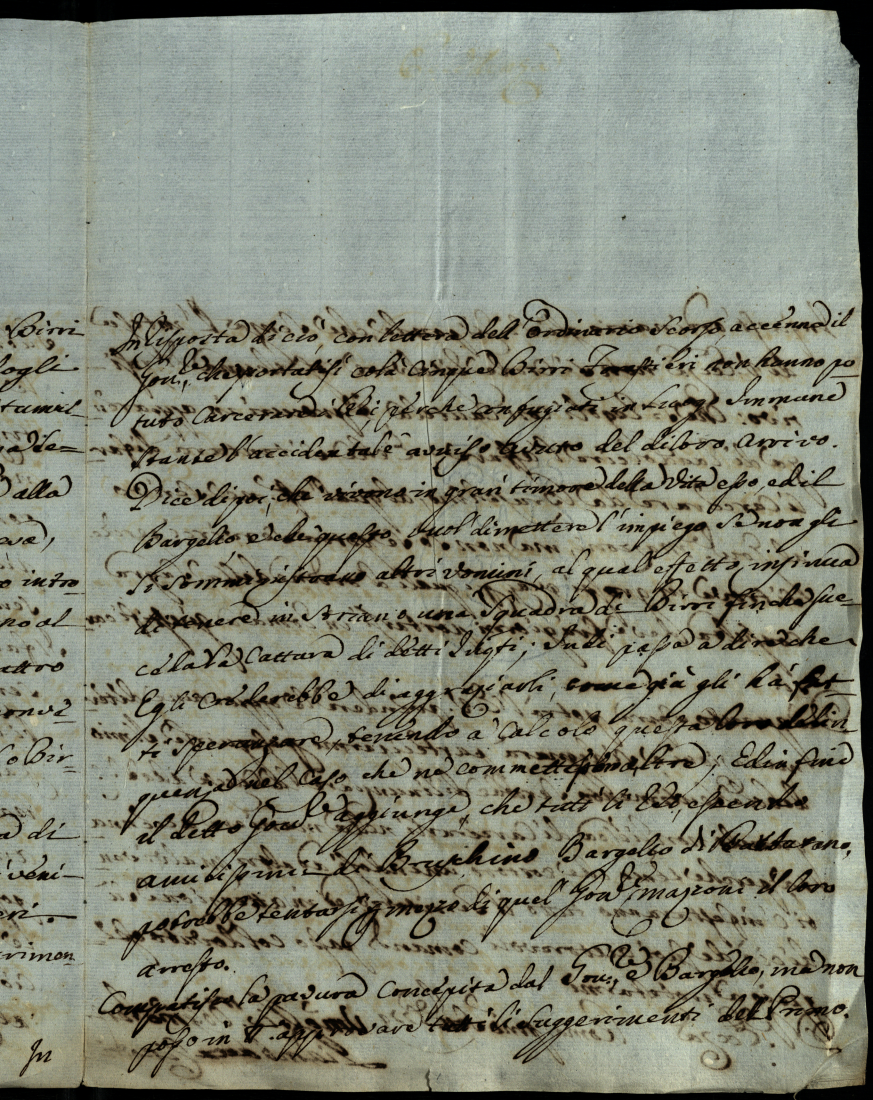 Birri
logli
tumul-
alla
intro-
no al
attro
convi-
di
veni-
eri.
crimon
In
In Risposta di ciò, con lettera dell'Ordinario scorso, accenna il
Gov.re, che portatisi colà cinque Birri Forestieri non hanno po-
tuto carcerare perche confugiati in Luogo Immune
stante l'accidentale avviso avuto del di loro arrivo.
Dice di poi, che vivono in gran timore della Vita esso, ed il
Bargello e che questo vuol dimettere l'impiego se non gli
si somministrano altri uomini, al qual effetto, insinua
di tenere in Ariano una Squadra di Birri finche sue-
ceda la Cattura di detti Inqti; Indi passa a dire che
Egli crederebbe di aggraziarli, come già gli hà fat-
ti speranzare, tenendo à calcolo questa loro delin-
quenza nel caso, che ne commettessero altre; Ed in fine
il detto Gov.re aggiunge, che tutti li essendo
amicissimi di Bruschino Bargello di
potrebbe tentarsi p mezzo di quel Gov.re Masponi il loro
arresto.
Compatisco la paura concepita dal Gov.re e Bargello, ma non
posso in T. approvare tutti li suggerimenti del Primo.